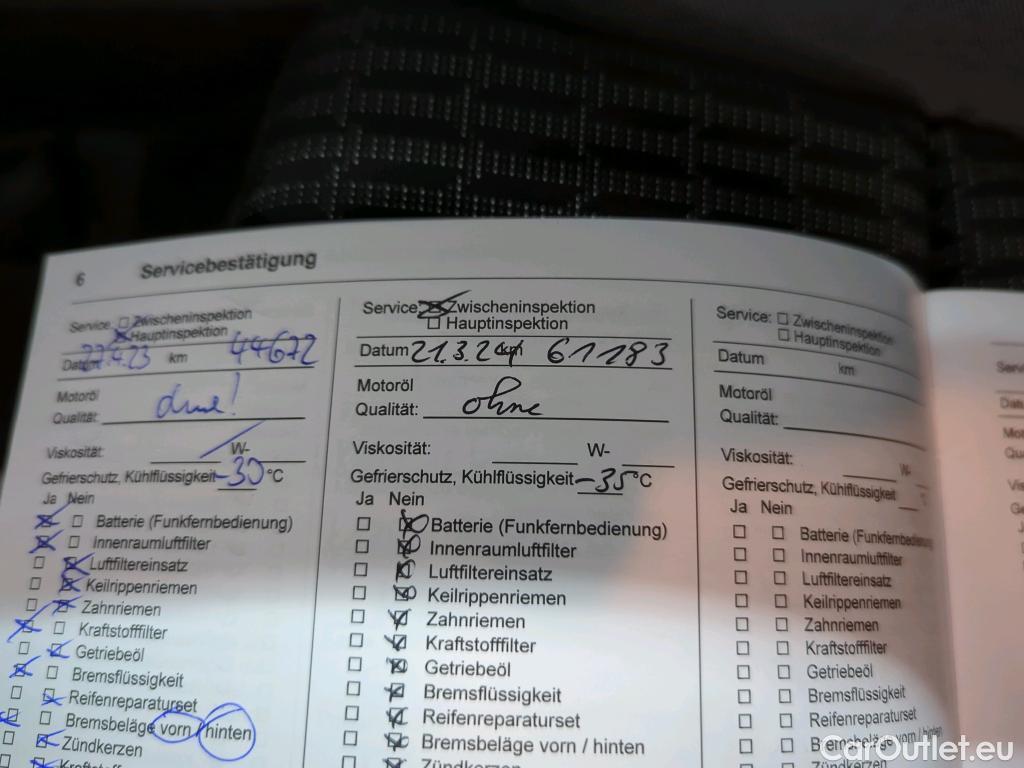 6 Servicebestätigung
Service: Zwischeninspektion
Hauptinspektion
Datum 27.4.23 km 44672
Motoröl
Qualität: ohne!
Viskosität: W-
Gefrierschutz, Kühlflüssigkeit -30 °C
Ja Nein
Batterie (Funkfernbedienung)
Innenraumluftfilter
Luftfiltereinsatz
Keilrippenriemen
Zahnriemen
Kraftstofffilter
Getriebeöl
Bremsflüssigkeit
Reifenreparaturset
Bremsbeläge vorn / hinten
Zündkerzen
Service: Zwischeninspektion
Hauptinspektion
Datum 21.3.24 km 61183
Motoröl
Qualität: ohne
Viskosität: W-
Gefrierschutz, Kühlflüssigkeit -35 °C
Ja Nein
Batterie (Funkfernbedienung)
Innenraumluftfilter
Luftfiltereinsatz
Keilrippenriemen
Zahnriemen
Kraftstofffilter
Getriebeöl
Bremsflüssigkeit
Reifenreparaturset
Bremsbeläge vorn / hinten
Zündkerzen
Service: Zwischeninspektion
Hauptinspektion
Datum km
Motoröl
Qualität:
Viskosität: W-
Gefrierschutz, Kühlflüssigkeit
Ja Nein
Batterie (Funkfernbedienung)
Innenraumluftfilter
Luftfiltereinsatz
Keilrippenriemen
Zahnriemen
Kraftstofffilter
Getriebeöl
Bremsflüssigkeit
Reifenreparaturset
Bremsbeläge vorn / hinten
Zündkerzen
CarOutlet.eu